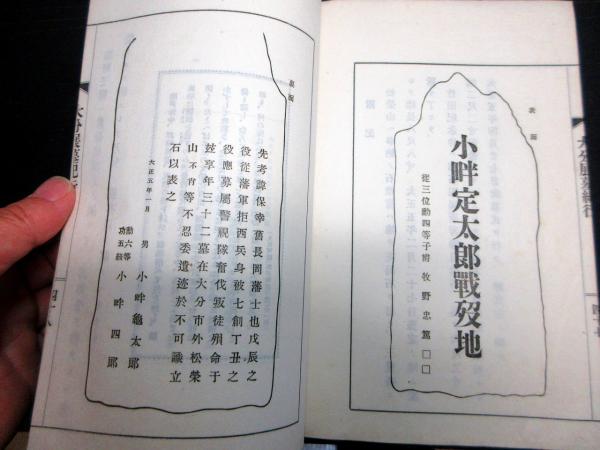 表面
小畔定太郎戰歿地
從三位勳四等子爵 牧野忠篤□□
裏面
先考諱保幸舊長岡藩士也戊辰之
役從藩軍拒西兵身被七創丁丑之
役應募屬警視隊奮伐叛徒殞命于
玆享年三十二墓在大分市外松榮
山不肖等不忍委遺迹於不可識立
石以表之
大正五年一月
男 小畔龜太郎
勳六等功五級 小畔四郎